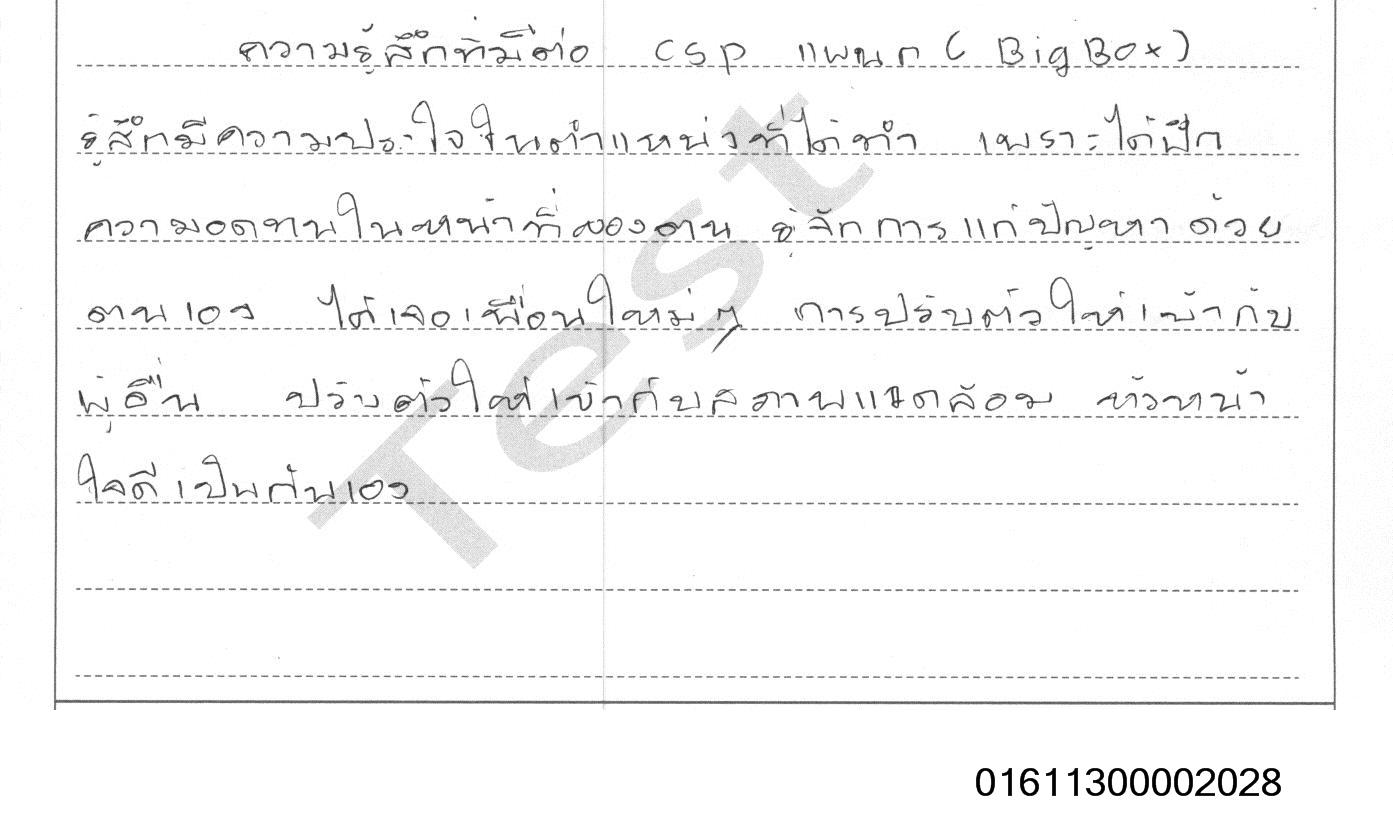 ความรู้สึกที่มีต่อ CSP แผนก ( Big Box )
รู้สึกมีความประใจในตำแหน่งที่ได้ทำ เพราะได้ฝึก
ความอดทนในหน้าที่ของตน รู้จักการแก้ปัญหาด้วย
ตนเอง ได้เจอเพื่อนใหม่ๆ การปรับตัวให้เข้ากับ
ผู้อื่น ปรับตัวให้เข้ากับสภาพแวดล้อม หัวหน้า
ใจดีเป็นกันเอง
Test
01611300002028